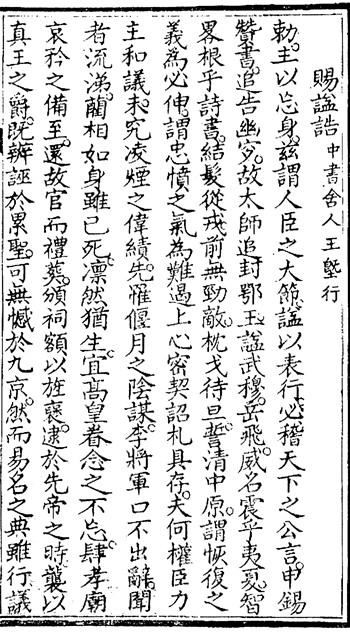 賜謚誥中書舍人王墍行
勅。主以忘身。茲謂人臣之大節。謚以表行。必稽天下之公言。申錫
贊書。追告幽穸。故太師追封鄂王。謚武穆。岳飛。威名震乎夷夏。智
畧根乎詩書。結髮從戎。前無勁敵。枕戈待旦。誓清中原。謂恢復之
義為必伸。謂忠憤之氣為難遏。上心密契。詔札具存。夫何權臣力
主和議。未究凌煙之偉績。先罹偃月之陰謀。李將軍口不出辭。聞
者流涕。藺相如身雖已死。凛然猶生。宜高皇眷念之不忘。肆孝廟
哀矜之備至。還故官而禮葬。頒祠額以旌襃。逮於先帝之時。襲以
真王之爵。既辨誣於累聖。可無憾於九京。然而易名之典雖行。議